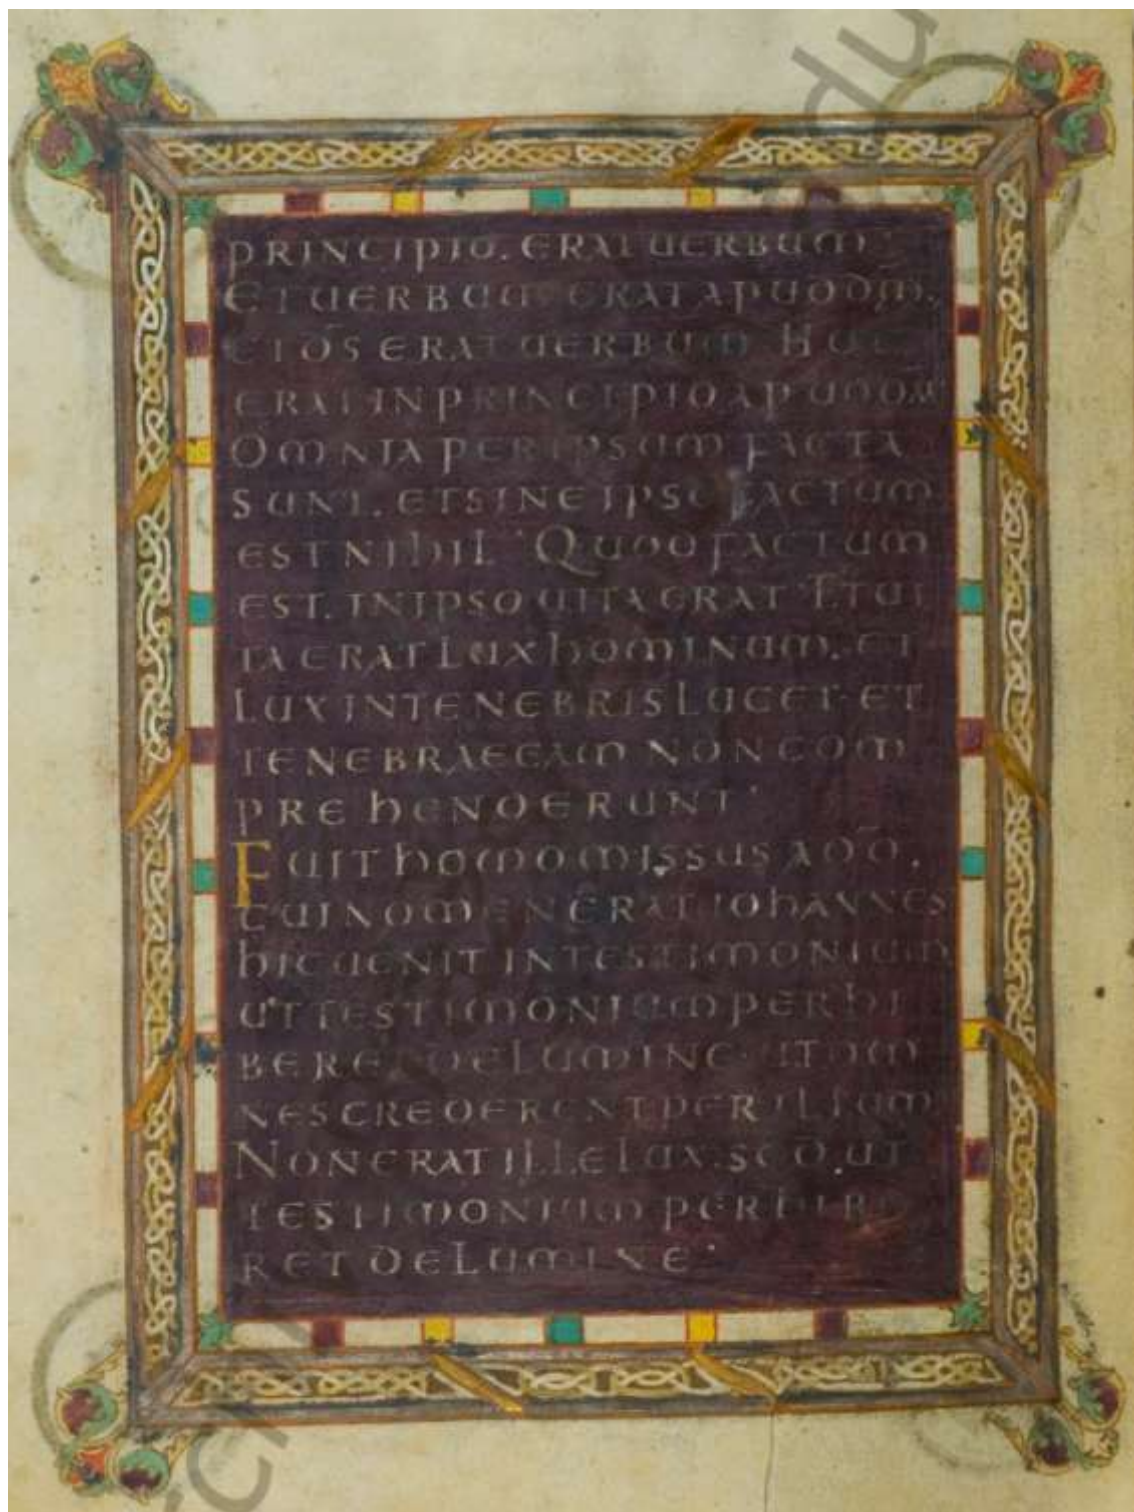 PRINCIPIO. ERAT UERBUM
ET UERBUM ERAT APUD DM̄.,
ET DS̄ ERAT UERBUM HOC
ERAT IN PRINCIPIO APUD DM̄
OMNIA PER IPSUM FACTA
SUNT. ET SINE IPSO FACTUM
EST NIHIL· QUOD FACTUM
EST. IN IPSO UITA ERAT· ET UI
TA ERAT LUX HOMINUM. ET
LUX IN TENEBRIS LUCET· ET
TENEBRAE EAM NON COM
PREHENDERUNT·
FUIT HOMO MISSUS A DŌ.
CUI NOMEN ERAT IOHANNES
HIC UENIT IN TESTIMONIUM
UT TESTIMONIUM PERHI
BERET DE LUMINE· UT OM
NES CREDERENT PER ILLUM
NON ERAT ILLE LUX. SED. UT
TESTIMONIUM PERHIBE
RET DE LUMINE·